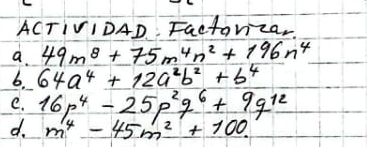 ACTIVIDAD. Factorizar.
a. 49m⁸ + 75m⁴n² + 196n⁴
b. 64a⁴ + 12a²b² + b⁴
c. 16p⁴ - 25p²q⁶ + 9q¹²
d. m⁴ - 45m² + 100.